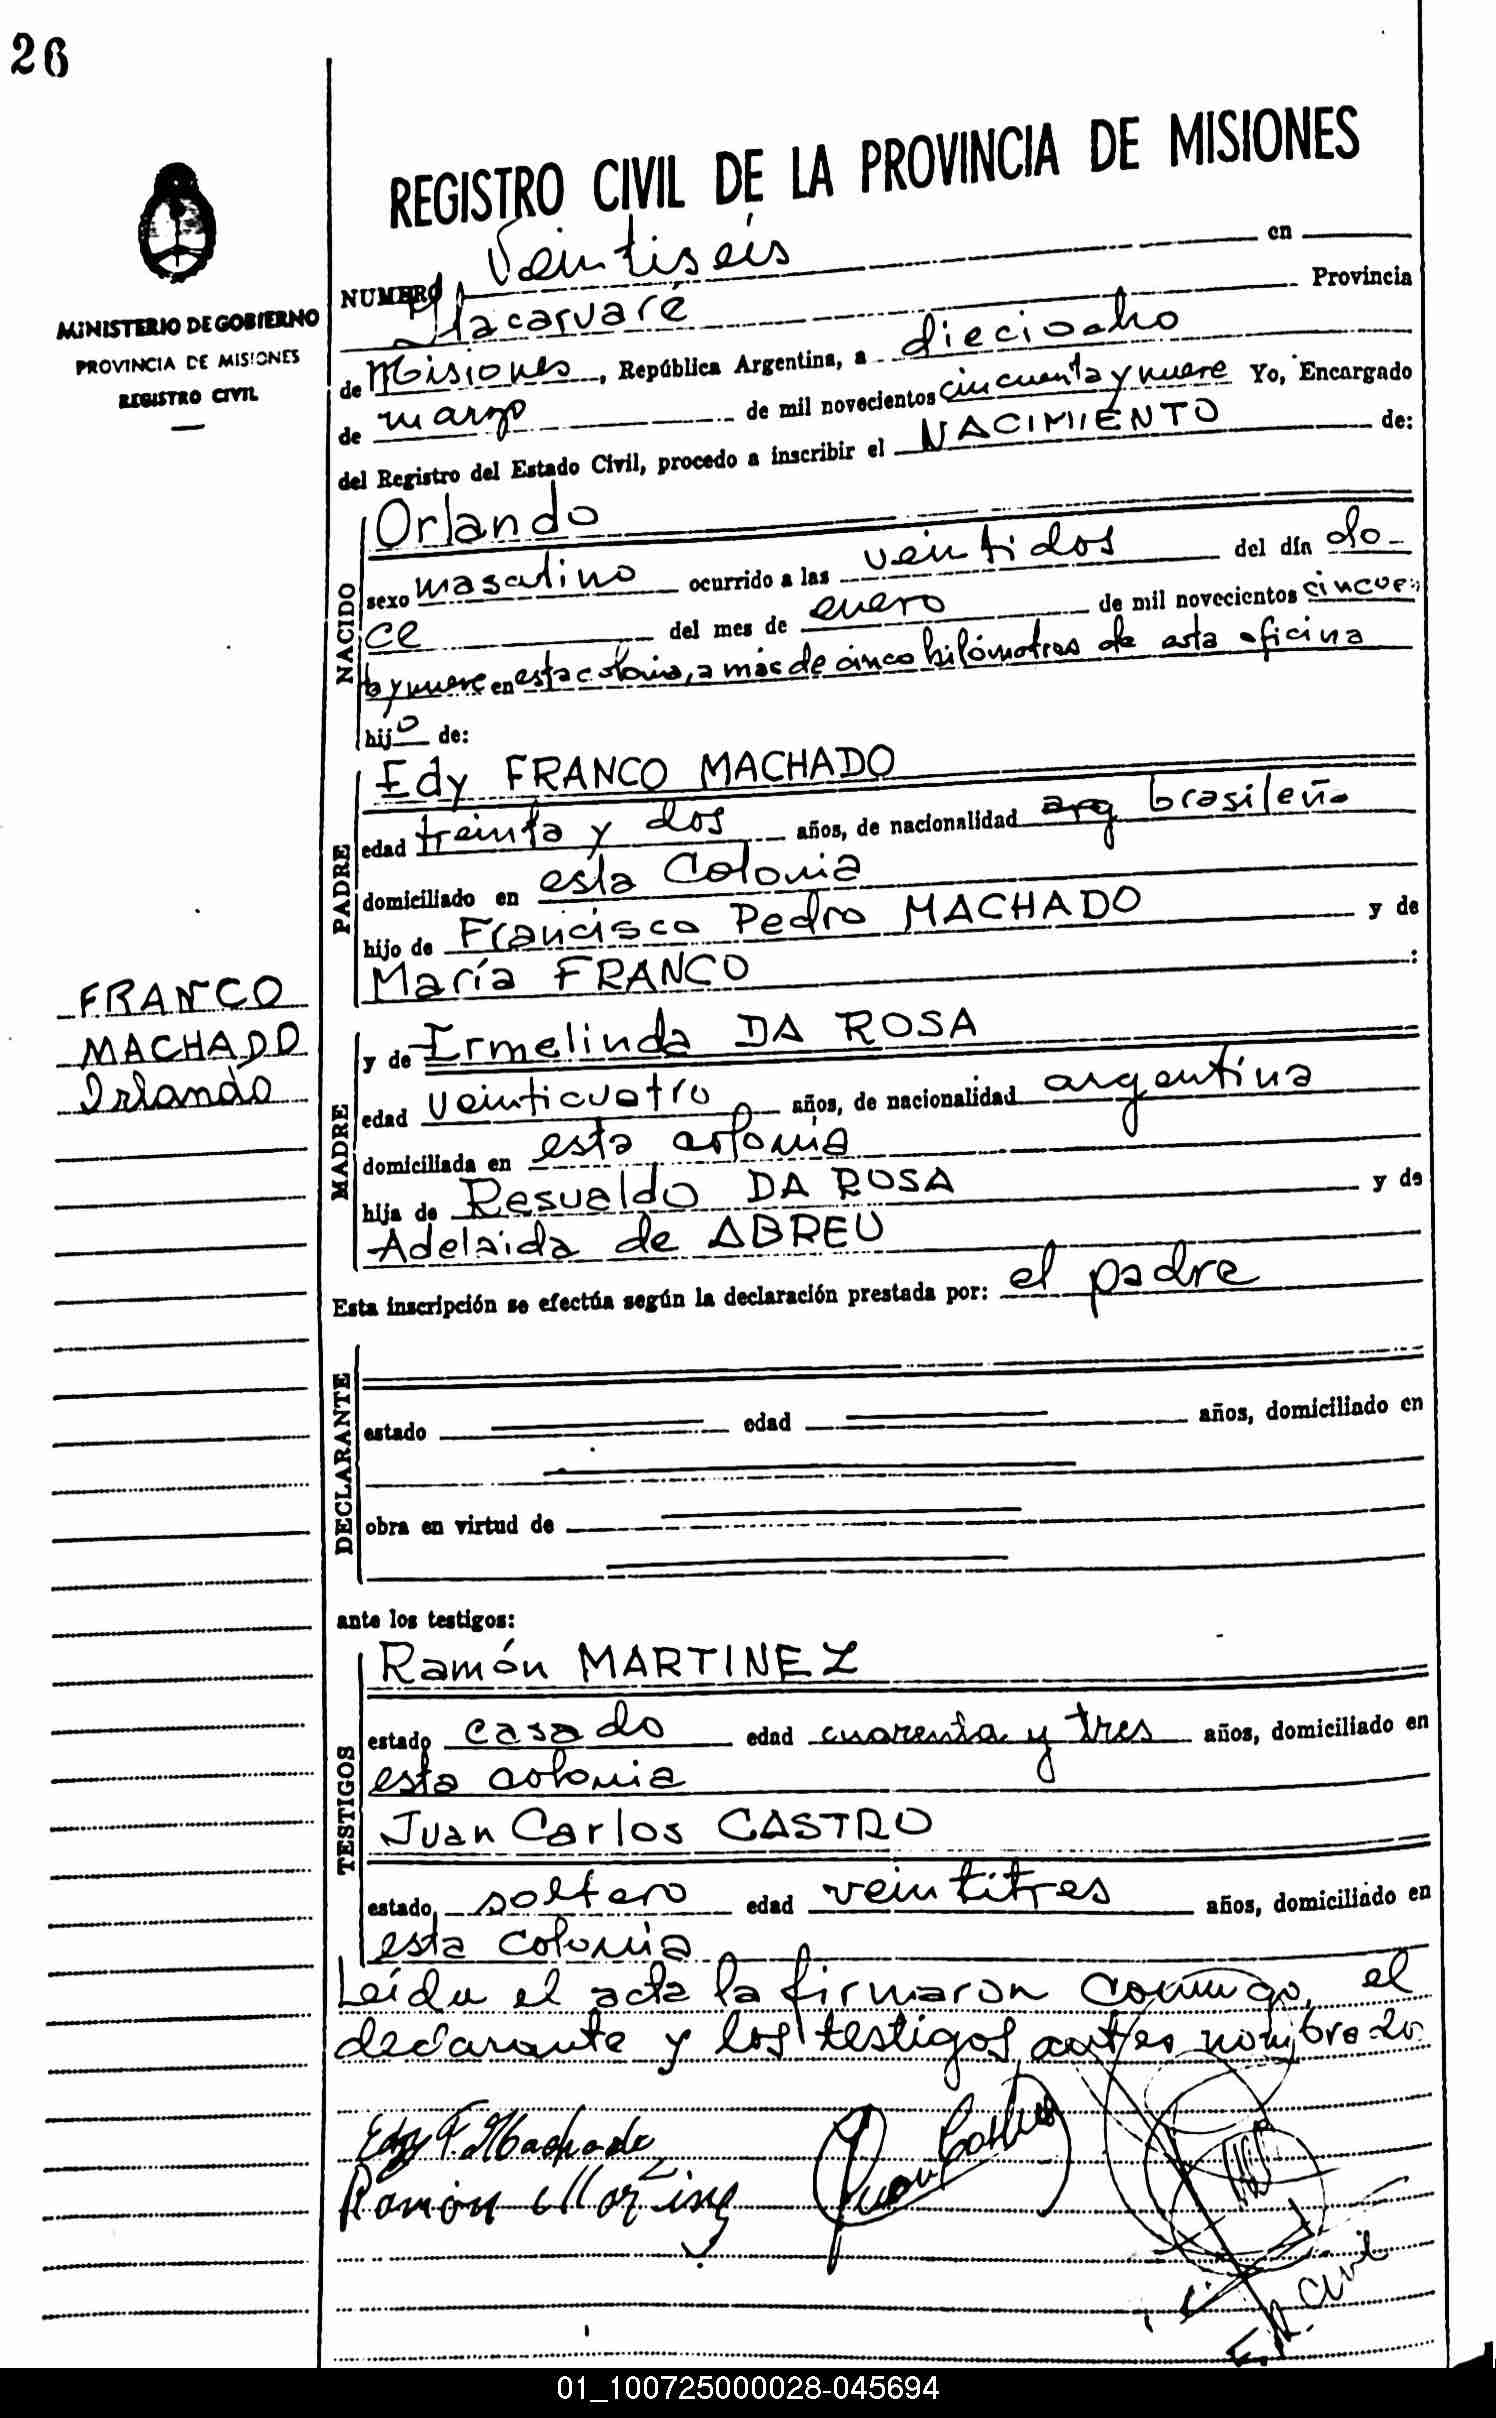 26
REGISTRO CIVIL DE LA PROVINCIA DE MISIONES
MINISTERIO DE GOBIERNO
PROVINCIA DE MISIONES
REGISTRO CIVIL
NUMERO Veintiseis en
Itacaruaré Provincia
de Misiones, República Argentina, a dieciocho
de marzo de mil novecientos cincuenta y nueve Yo, Encargado
del Registro del Estado Civil, procedo a inscribir el NACIMIENTO de:
NACIDO
Orlando
sexo masculino ocurrido a las veintidos del día do-
ce del mes de enero de mil novecientos cincuen
ta y nueve en esta colonia, a más de cinco kilómetros de esta oficina
hijo de:
PADRE
Edy FRANCO MACHADO
edad treinta y dos años, de nacionalidad arg brasileño
domiciliado en esta Colonia
hijo de Francisco Pedro MACHADO y de
María FRANCO :
FRANCO
MACHADO
Orlando
MADRE
y de Ermelinda DA ROSA
edad veinticuatro años, de nacionalidad argentina
domiciliada en esta colonia
hija de Resualdo DA ROSA y de
Adelaida de ABREU
Esta inscripción se efectúa según la declaración prestada por: el padre
DECLARANTE
estado edad años, domiciliado en
obra en virtud de
ante los testigos:
TESTIGOS
Ramón MARTINEZ
estado casado edad cuarenta y tres años, domiciliado en
esta colonia
Juan Carlos CASTRO
estado soltero edad veintitres años, domiciliado en
esta colonia
Leída el acta la firmaron conmigo, el
declarante y los testigos antes nombrado
Edy F. Machado
Ramón Martinez
Juan Castro
E. R. Civil
01_100725000028-045694